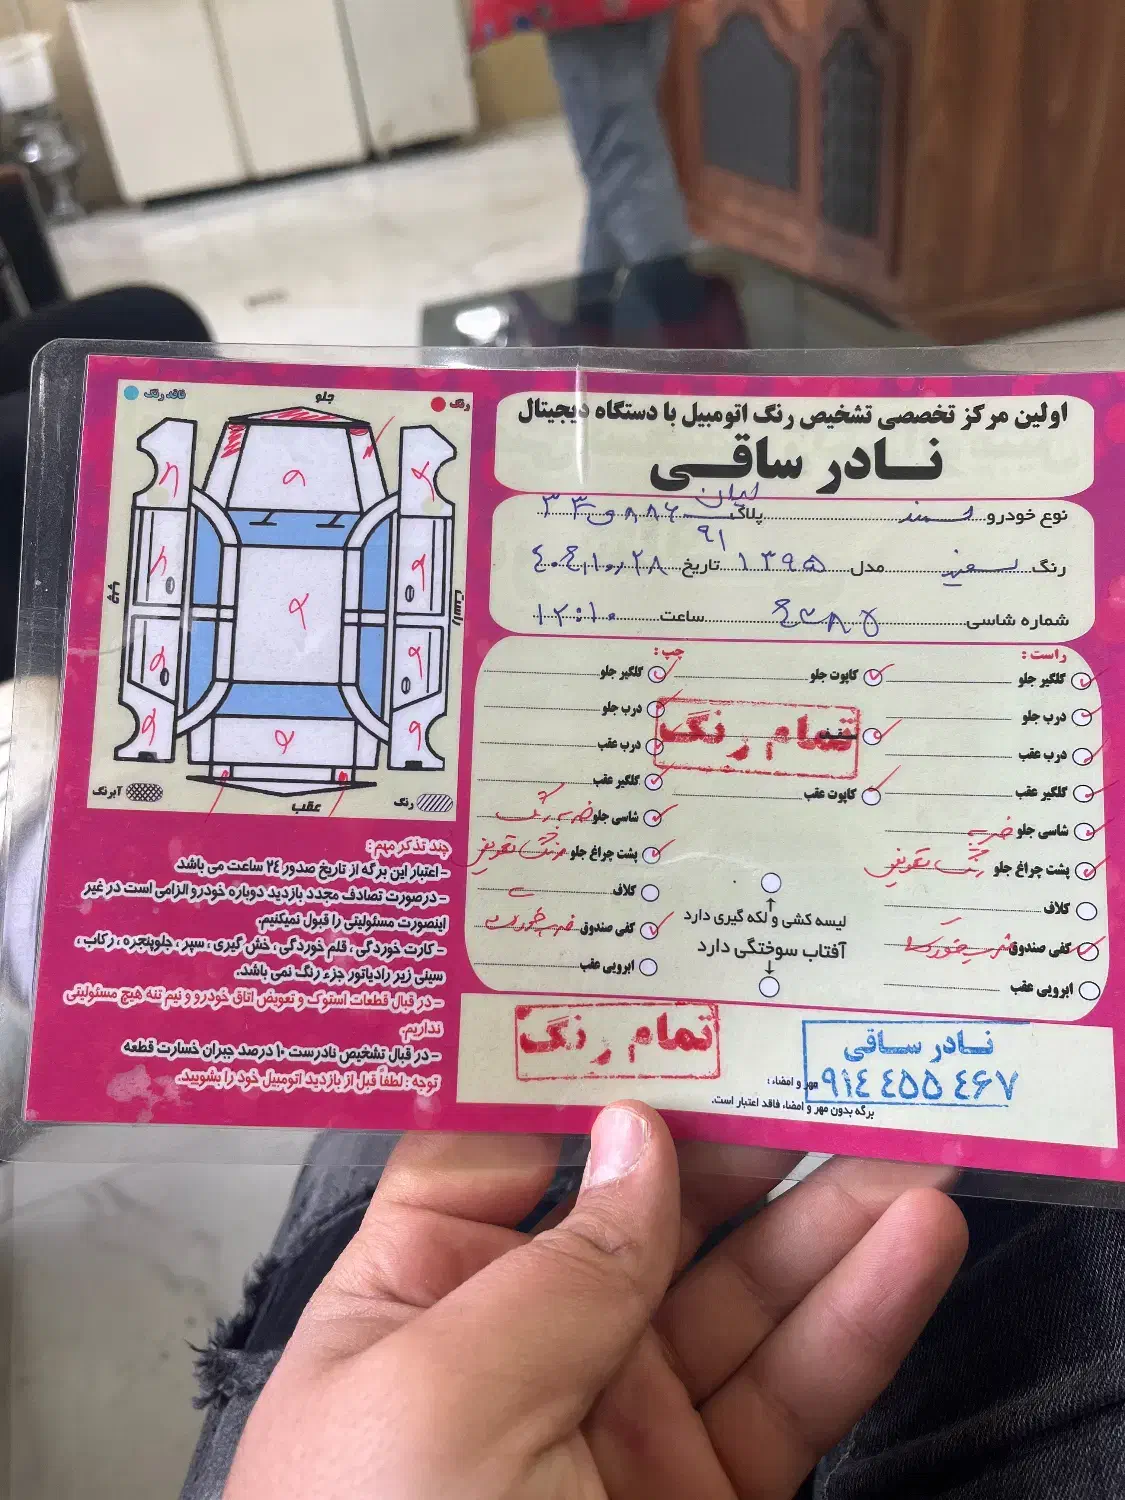 اولین مرکز تخصصی تشخیص رنگ اتومبیل با دستگاه دیجیتال
نادر ساقی
نوع خودرو سمند پلاک ایران ۹۱ ۸۸۶ و ۳۳
رنگ سفید مدل ۱۳۹۵ تاریخ
شماره شاسی ساعت ۱۲:۱۰
رنگ
فاقد رنگ
جلو
راست
چپ
عقب
رنگ
آبرنگ
راست :
گلگیر جلو
درب جلو
درب عقب
گلگیر عقب
شاسی جلو ضربه
پشت چراغ جلو رنگ تعویض
کلاف
کفی صندوق ضرب خورده
ابرویی عقب
کاپوت جلو
سقف
کاپوت عقب
تمام رنگ
لیسه کشی و لکه گیری دارد
آفتاب سوختگی دارد
چپ :
گلگیر جلو
درب جلو
درب عقب
گلگیر عقب
شاسی جلو ضربه رنگ
پشت چراغ جلو رنگ تعویض
کلاف
کفی صندوق ضرب خورده
ابرویی عقب
چند تذکر مهم :
- اعتبار این برگه از تاریخ صدور ۲۴ ساعت می باشد
- در صورت تصادف مجدد بازدید دوباره خودرو الزامی است در غیر
اینصورت مسئولیتی را قبول نمیکنیم.
- کارت خوردگی ، قلم خوردگی ، خش گیری ، سپر ، جلوپنجره ، رکاب ،
سینی زیر رادیاتور جزء رنگ نمی باشد.
- در قبال قطعات استوک و تعویض اتاق خودرو و نیم تنه هیچ مسئولیتی
نداریم.
- در قبال تشخیص نادرست ۱۰ درصد جبران خسارت قطعه
توجه : لطفاً قبل از بازدید اتومبیل خود را بشویید.
تمام رنگ
نادر ساقی
۹۱۴ ۴۵۵ ۴۶۷
مهر و امضاء :
برگه بدون مهر و امضاء فاقد اعتبار است.